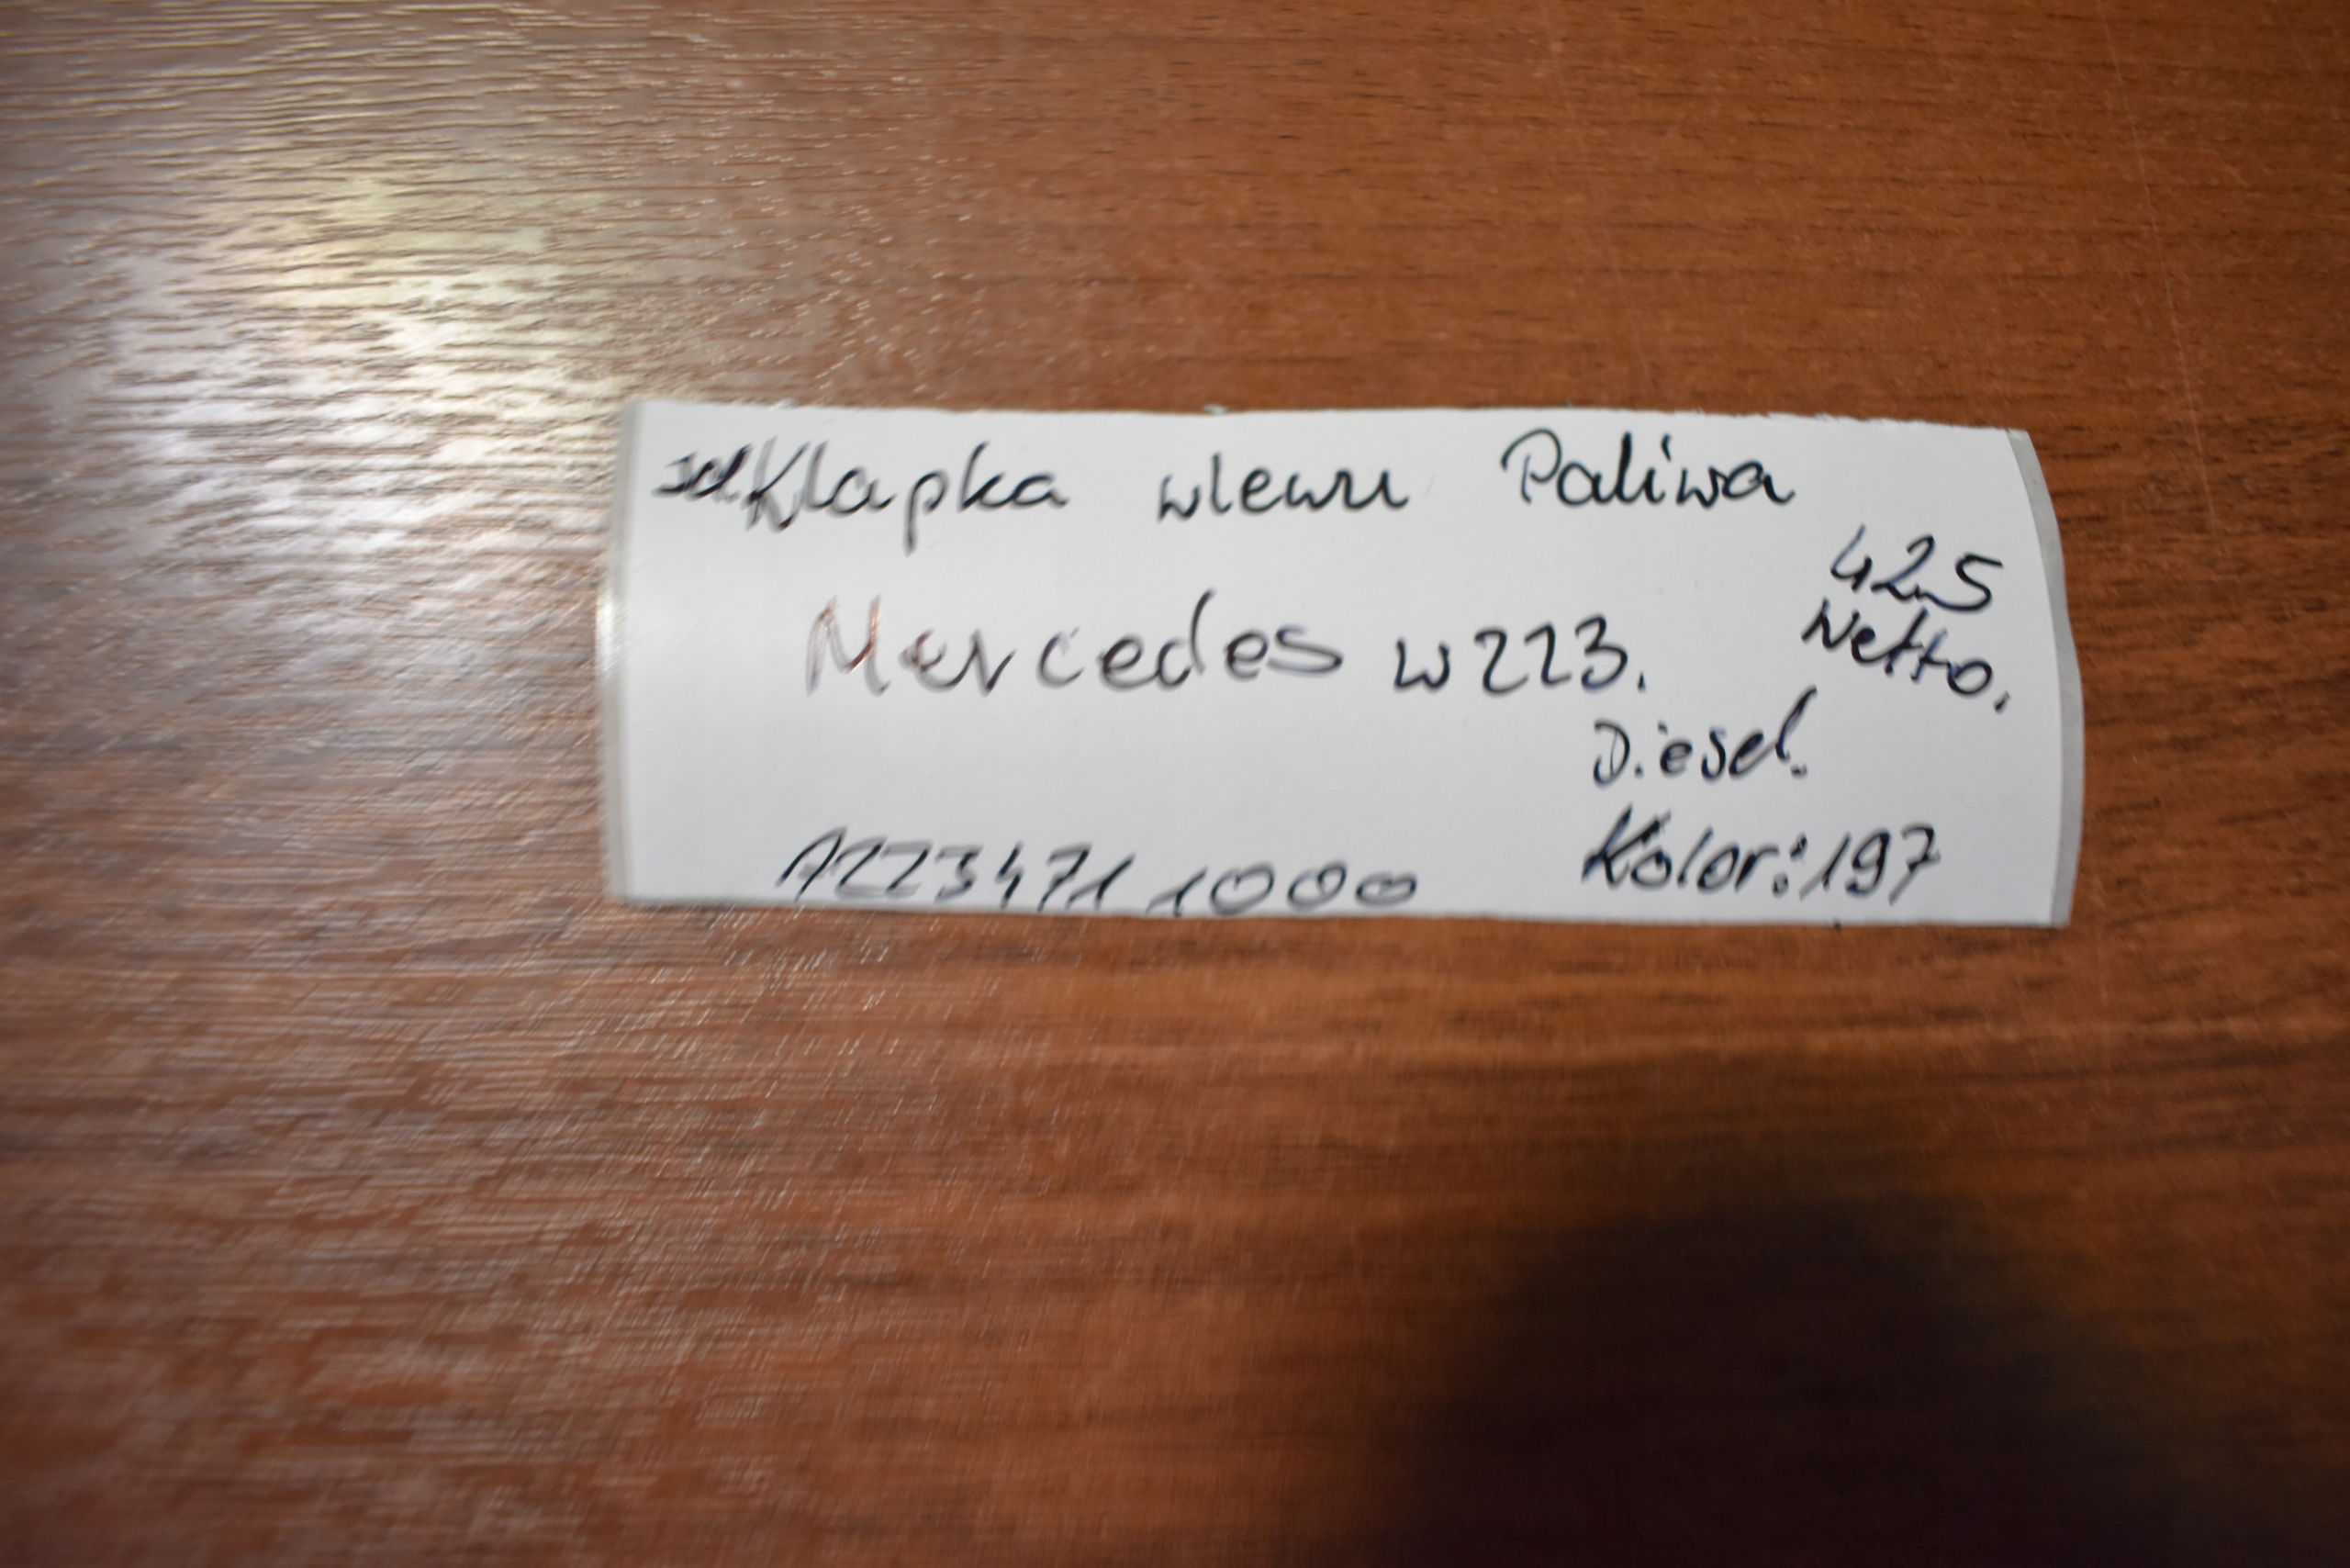 Klapka wlewu Paliwa
425
Netto.
Mercedes w223.
Diesel.
A2234711000 Kolor:197